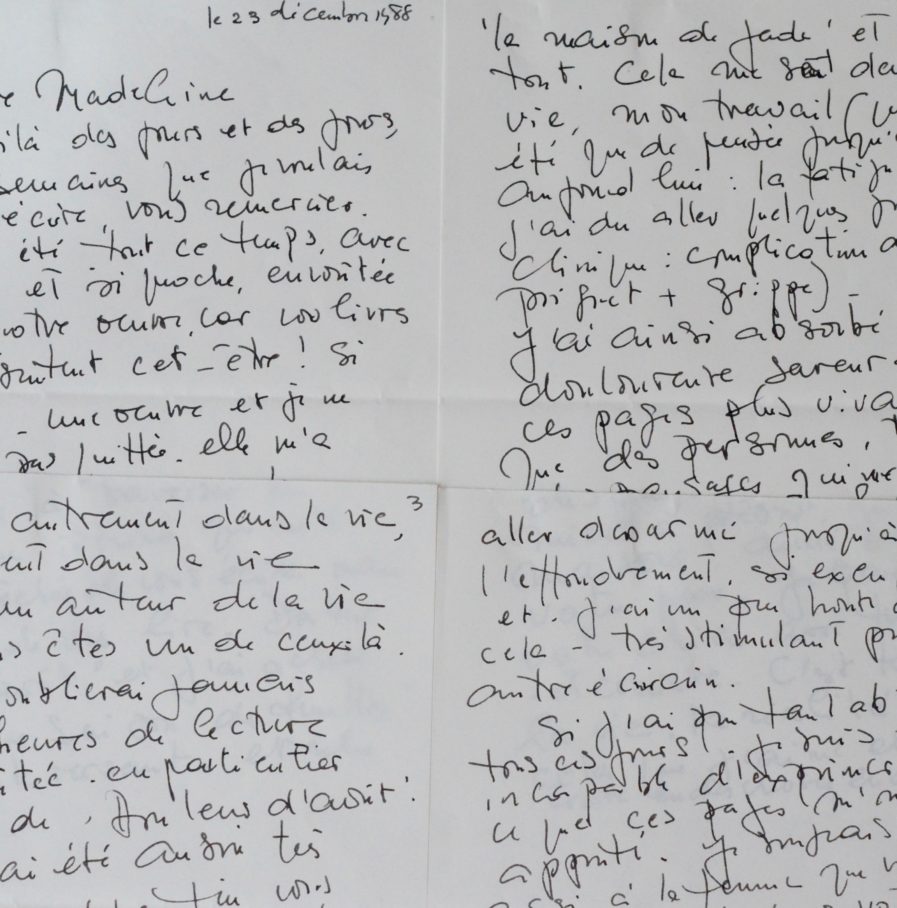 le 23 décembre 1988
Madeleine
ilà des jours et des jours,
semaines que je voulais
écrire, vous remercier.
été tout ce temps, avec
et si proche, envoûtée
votre œuvre, car vos livres
cet-être ! Si
une œuvre et je ne
pas quittée. elle m'a
'la maison de jade' et
tout. Cela me
vie, mon travail
été que de pensée jusqu'
aujourd'hui : la
j'ai du aller quelques
clinique : complication
+ grippe) -
J'ai ainsi absorbé
douloureuse saveur
ces pages plus
que des personnes,
autrement dans la vie, 3
dans la vie
un auteur de la vie
êtes un de ceux-là.
oublierai jamais
heures de lecture
en particulier
de 'Douleur d'août'.
ai été aussi très
vous
aller désarmé jusqu'à
l'effondrement. si
et. J'ai un peu honte
cela - très stimulant
autre écrivain.
Si j'ai pu tant
tous ces jours. je suis
incapable d'exprimer
ce que ces pages m'
apporté. Je
à la femme que